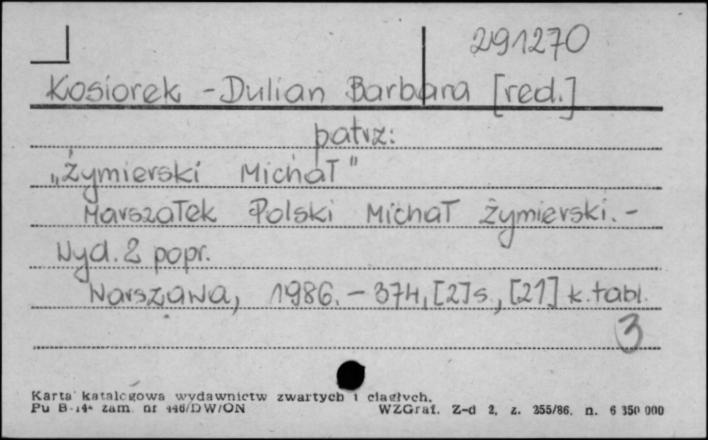 291270
Kosiorek - Dulian Barbara [red.]
patrz:
„Żymierski Michał"
Marszałek Polski Michał Żymierski. -
Wyd. 2 popr.
Warszawa, 1986. - 374, [2] s., [21] k. tabl.
3
Karta katalogowa wydawnictw zwartych i ciągłych.
Pu B-14 zam. nr 446/DW/ON WZGraf. Z-d 2, z. 255/86. n. 6 350 000